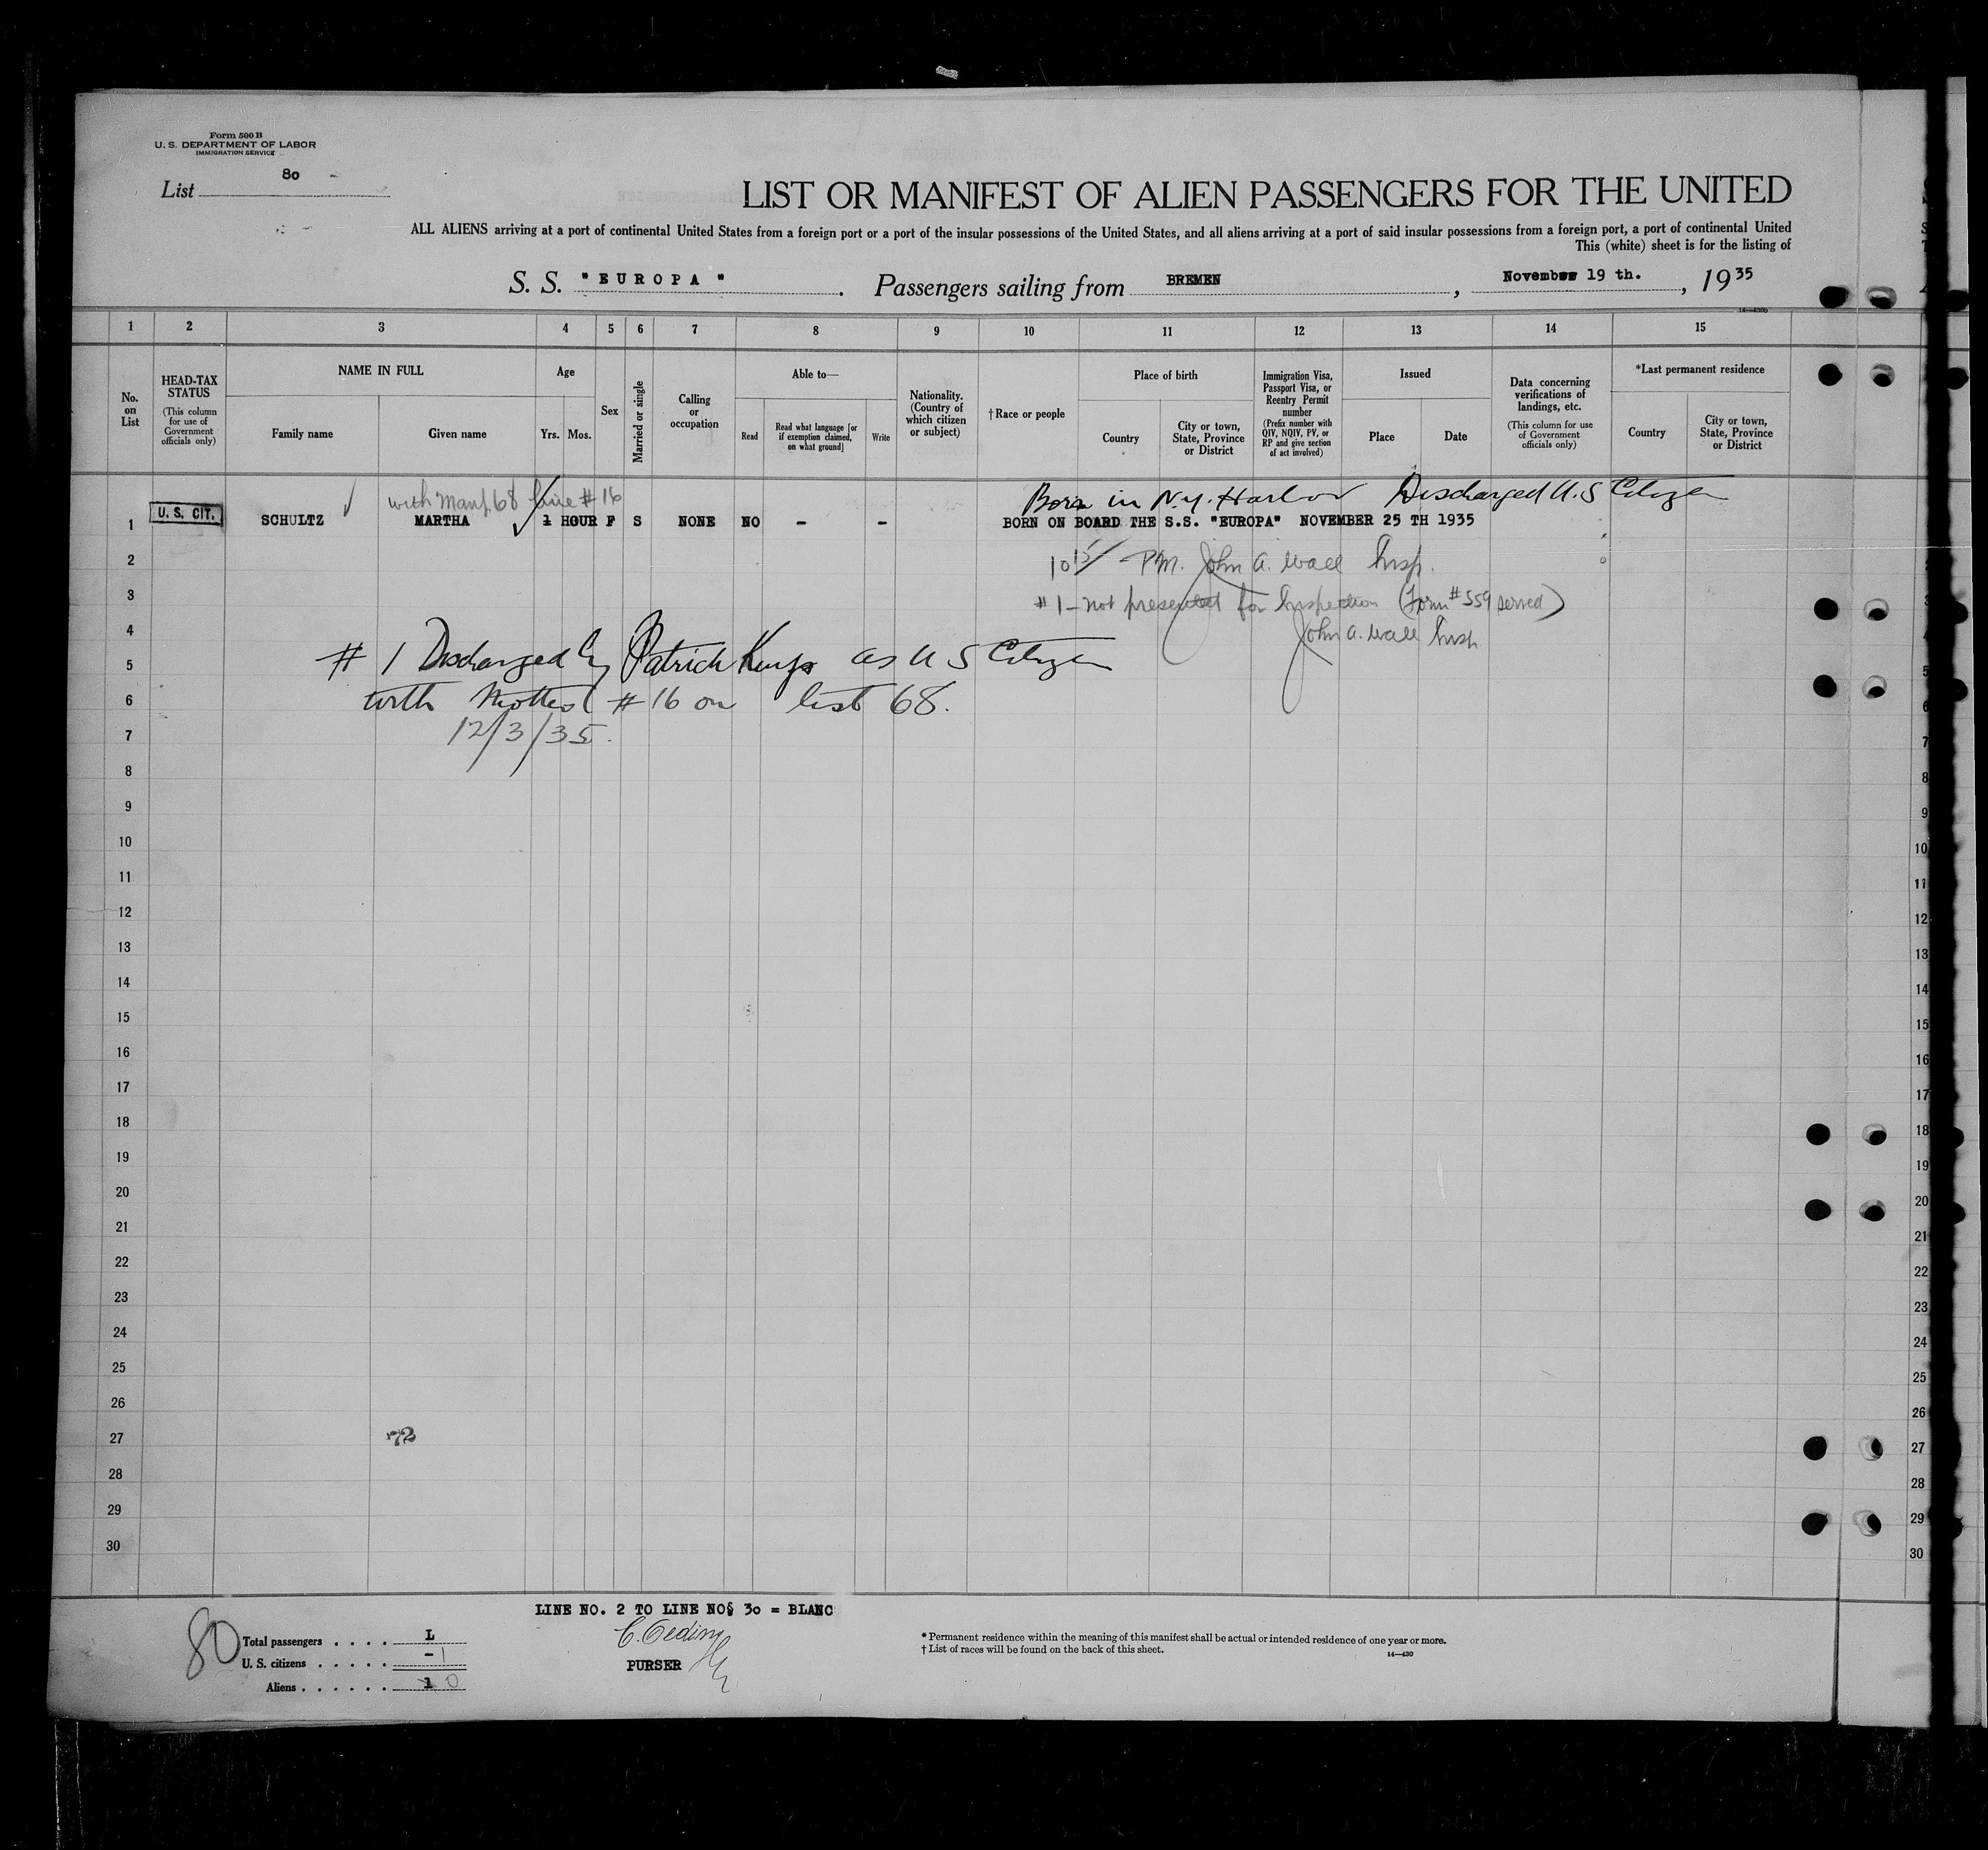 Form 500 B
U. S. DEPARTMENT OF LABOR
IMMIGRATION SERVICE
List 80
LIST OR MANIFEST OF ALIEN PASSENGERS FOR THE UNITED
ALL ALIENS arriving at a port of continental United States from a foreign port or a port of the insular possessions of the United States, and all aliens arriving at a port of said insular possessions from a foreign port, a port of continental United
This (white) sheet is for the listing of
S. S. "EUROPA". Passengers sailing from BREMEN, November 19 th., 1935
1 2 3 4 5 6 7 8 9 10 11 12 13 14 15
No. on List
HEAD-TAX STATUS
(This column for use of Government officials only)
NAME IN FULL
Family name
Given name
Age
Yrs. Mos.
Sex
Married or single
Calling or occupation
Able to—
Read
Read what language [or if exemption claimed, on what ground]
Write
Nationality. (Country of which citizen or subject)
† Race or people
Place of birth
Country
City or town, State, Province or District
Immigration Visa, Passport Visa, or Reentry Permit number
(Prefix number with QIV, NQIV, PV, or RP and give section of act involved)
Issued
Place
Date
Data concerning verifications of landings, etc.
(This column for use of Government officials only)
*Last permanent residence
Country
City or town, State, Province or District
with Manf. 68 line #16
Born in N.Y. Harbor Discharged U.S Citizen
1 U. S. CIT. SCHULTZ MARTHA 1 HOUR F S NONE NO - - BORN ON BOARD THE S.S. "EUROPA" NOVEMBER 25 TH 1935
2 10 15/ - P.M. John A. Wall Insp.
3 #1 - not presented for Inspection (Form #559 served)
4 John A. Wall Insp
5 # 1 Discharged by Patrick as U S Citizen
6 with Mother #16 on list 68.
7 12/3/35.
8
9
10
11
12
13
14
15
16
17
18
19
20
21
22
23
24
25
26
27 72
28
29
30
LINE NO. 2 TO LINE NO§ 30 = BLANC
80
Total passengers . . . . L
U. S. citizens . . . . . -1
Aliens . . . . . . 1 0
C. Oeding
PURSER
* Permanent residence within the meaning of this manifest shall be actual or intended residence of one year or more.
† List of races will be found on the back of this sheet.
14—430